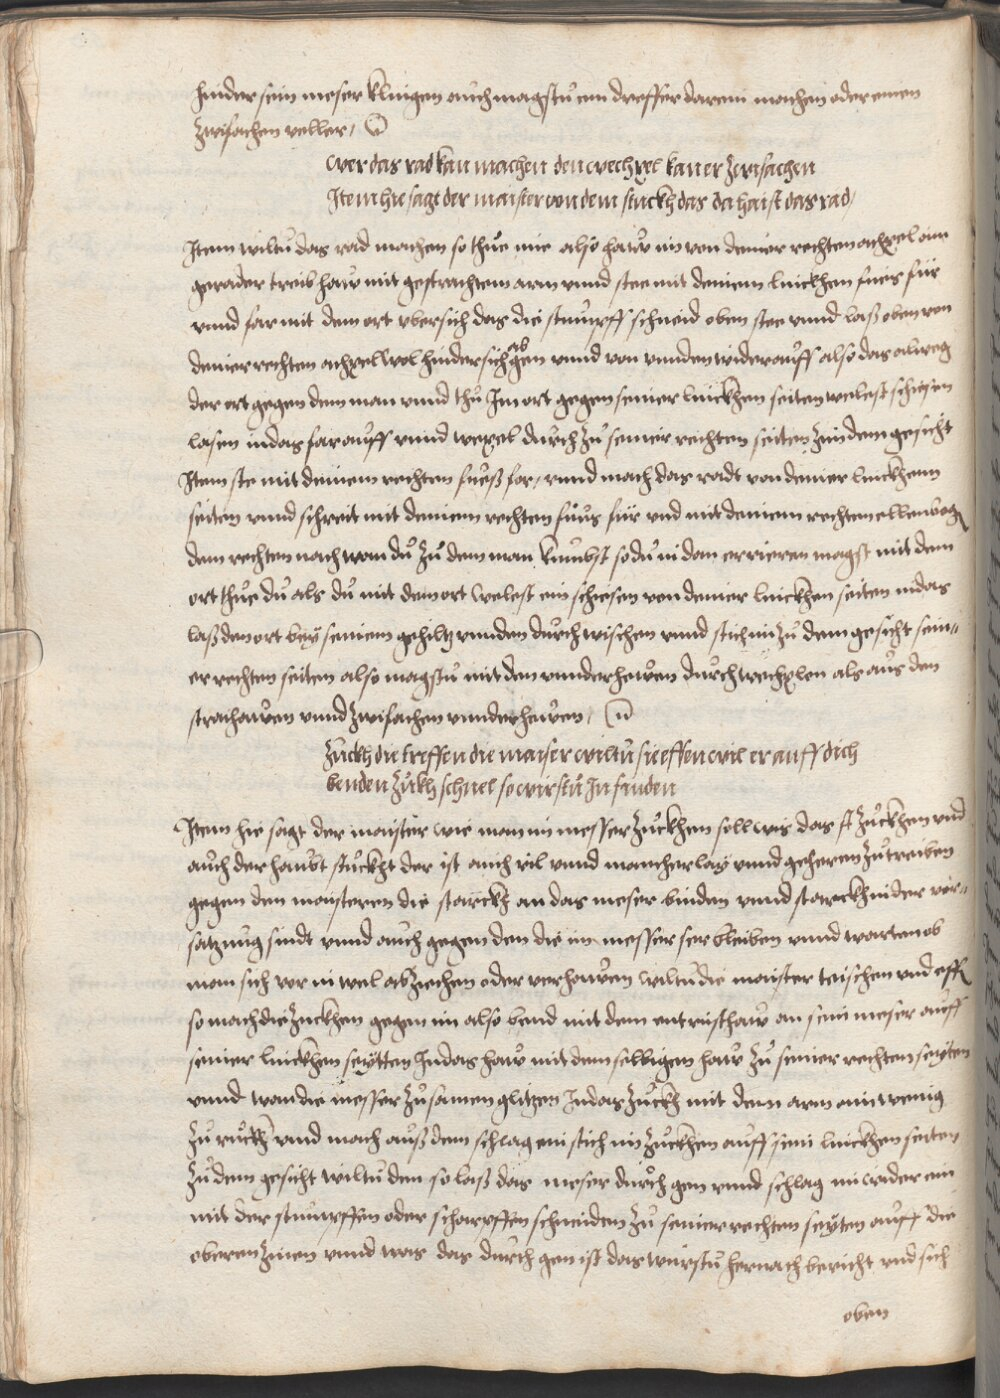 hinder sein meser klingen auch magstu ein dreffer darein machen oder einen
zwifachen veller,
wer das rad kan machen den wechxel kan er zwifachen
Item hie sagt der maister von dem stuckh das da haist das rad,
Item wiltu das rad machen so thue im also haw im von deiner rechten achxel ain
gerader treib haw mit gestrachtem arm vnnd stee mit deinem linckhen fues für
vnnd far mit dem ort vbersich das die stumpff schneid oben stee vnnd laß oben von
deiner rechten achxel wol hindersich ab gen vnnd von vnnden wider auff also das alweg
der ort gegen dem man vnnd thu Im ort gegen seiner linckhen seiten welest schiesen
lasen in das far auff vnnd wexel durch zu seiner rechten seiten zu in dem gesicht
Item ste mit deinem rechten fueß for, vnnd mach das radt von deiner linckhenn
seiten vnnd schreit mit deinem rechten fuus für vnd mit deinem rechten ellenbog
dem rechten nach wan du zu dem man kumbst so du in dan erreien magst mit dem
ort thue du als du mit dem ort welest ein schiesen von deiner linckhen seiten in das
laß den ort bey seinem gehiltz vnnden durch wischen vnnd stich im zu dem gesicht sein-
er rechten seiten also magstu mit den vnnderhewen durch wechxlen als aus den
strachawen vnnd zwifachen vnnderhewen,
zuckh die treffen die maiser wiltu sie effen wil er auff dich
benden zuckh schnel so wirstu In fanden
Item hie sagt der maister wie man im messer zuckhen soll wis das zuckhen vnd
auch der haubt stuckht der ist auch vil vnnd mancherlay vnnd geheren zu treiben
gegen den maisteren die starckh an das meser binden vnnd starckh in der ver-
satzung sindt vnnd auch gegen den die im messer ser bleiben vnnd warten ob
man sich vor in wel abziechen oder verhawen wiltu die maister teischen vnd eff
so mach die zuckhen gegen im also bend mit dem entristhaw an sein meser auff
seiner linckhen seytten Indas haw mit dem selbigen haw zu seiner rechten seyten
vnnd wan die messer zu samen glitzen Indas zuckh mit dein arm ain wenig
zu ruckh vnnd mach auß dem schlag ein stich im zuckhen auff sein linckhen seiten
zu dem gesicht wiltu den so laß das meser durch gen vnnd schlag im wider ein
mit der stumpffen oder scharpffen schneiden zu seiner rechten seyten auff die
oberen zinen vnnd was das durch gen ist das wirstu hernach bericht vnd sich
oben